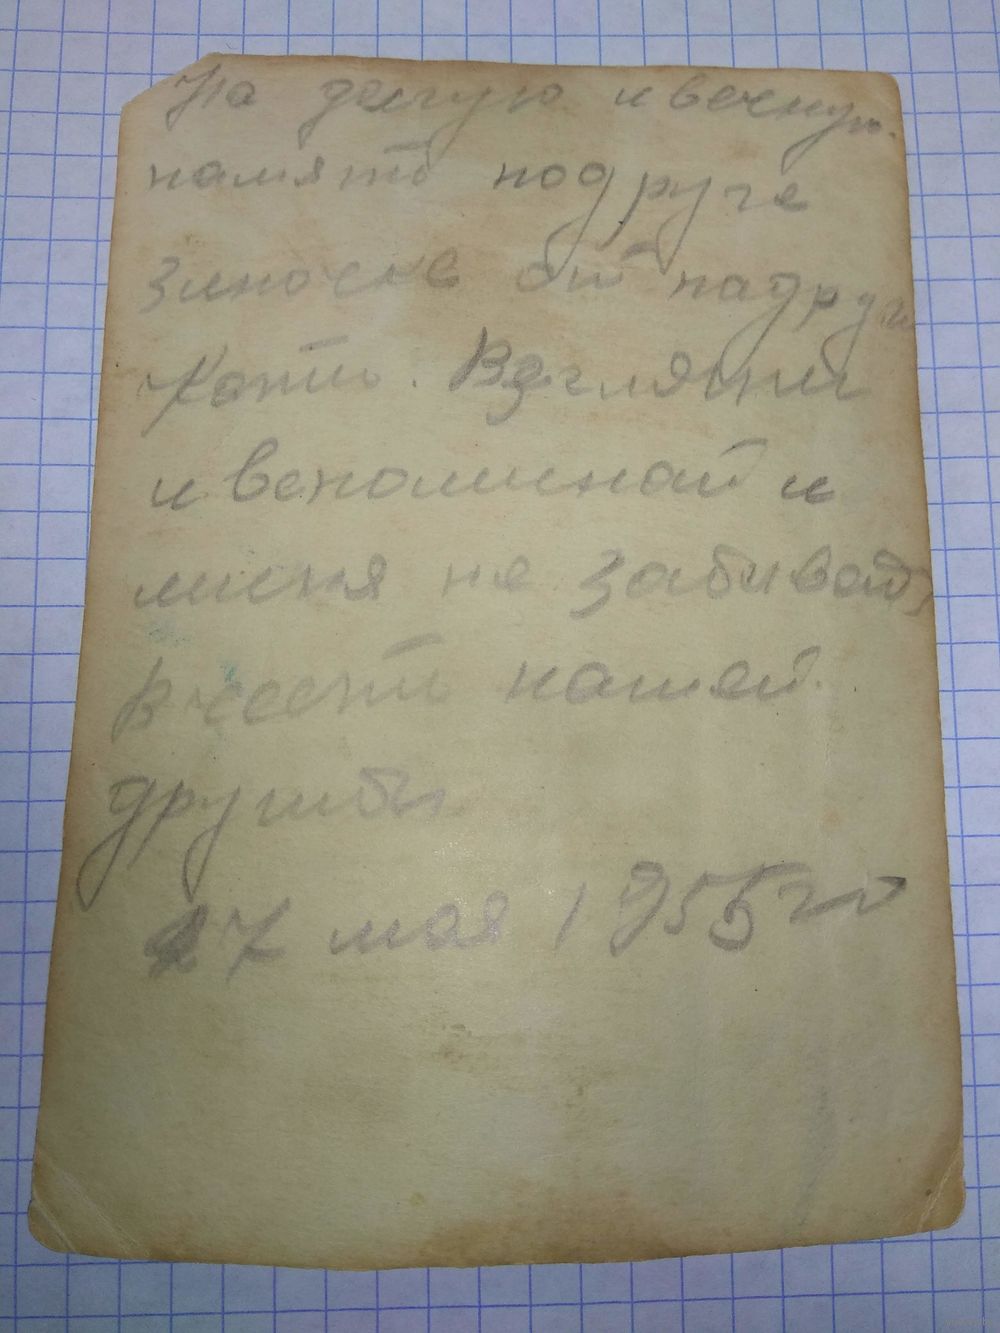 На долгую и вечную
память подруге
Зиночке от падруги
Кати. Взгляни
и вспоминай и
миня не забивай
В честь нашей
дружбы
27 мая 1955 го